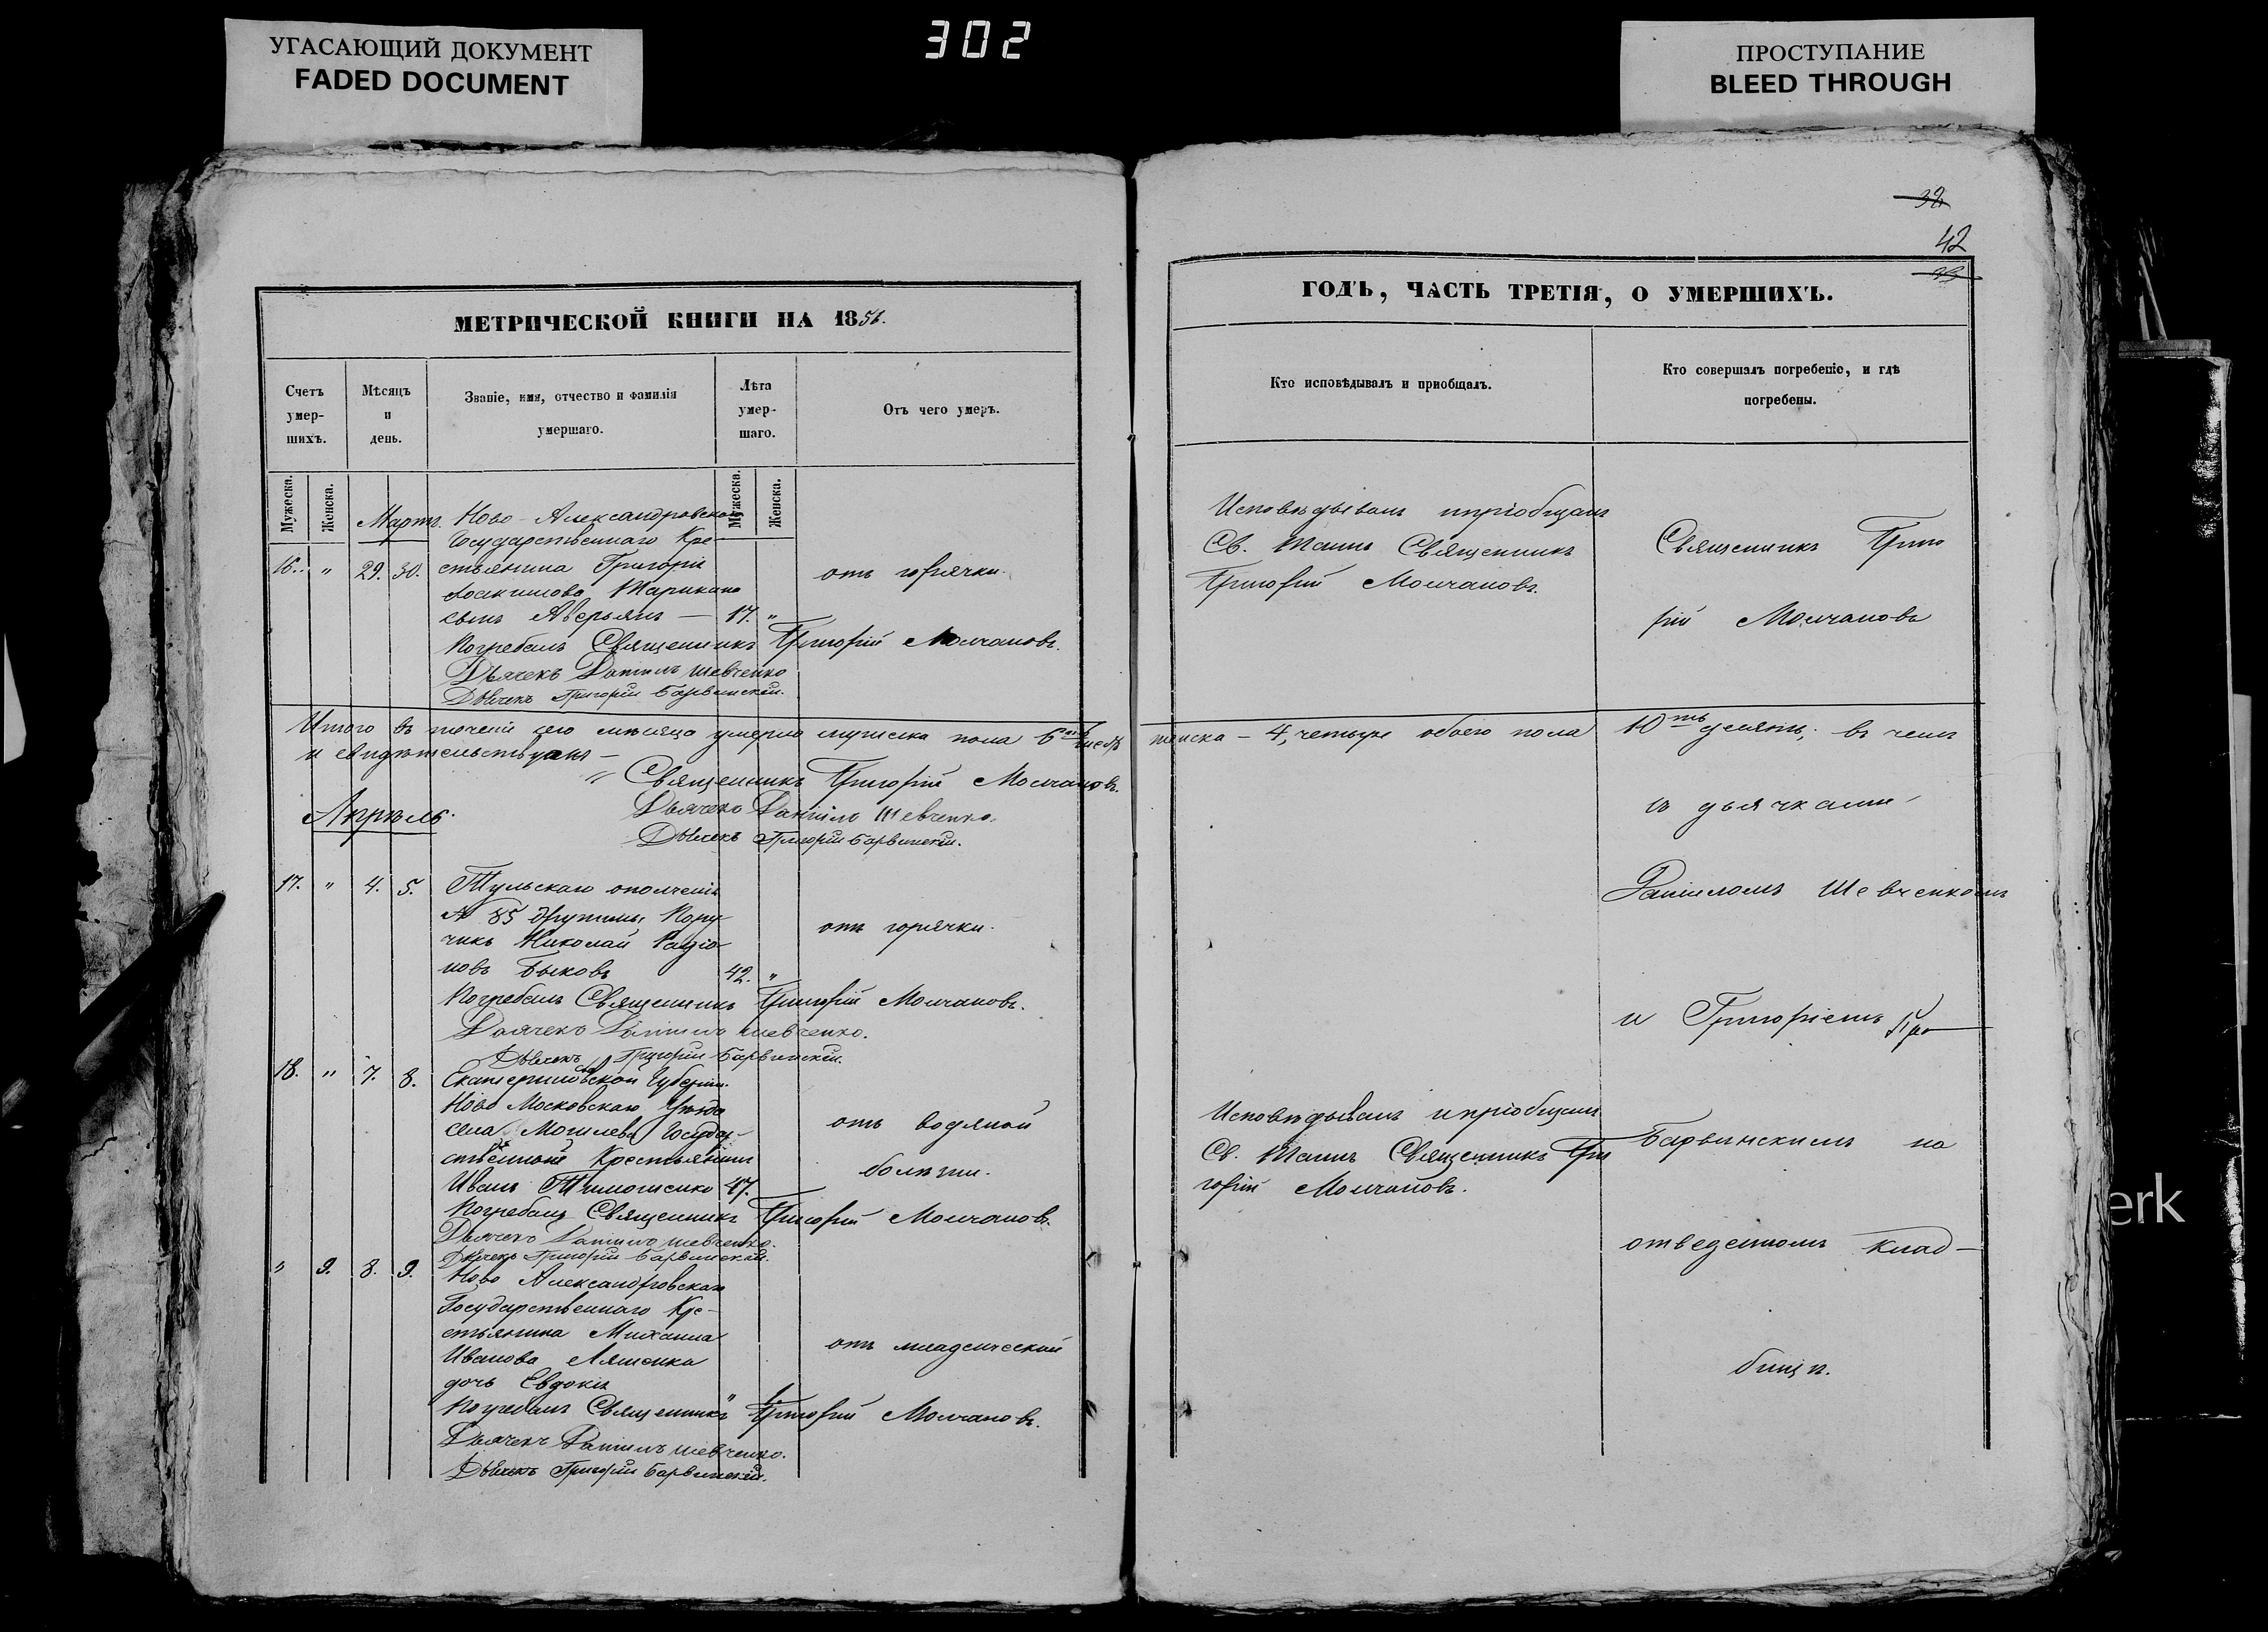 УГАСАЮЩИЙ ДОКУМЕНТ
FADED DOCUMENT
302
ПРОСТУПАНИЕ
BLEED THROUGH
32
42
МЕТРИЧЕСКОЙ КНИГИ НА 1856.
Счетъ умер-шихъ.
Мѣсяцъ и день.
Званіе, имя, отчество и фамилія умершаго.
Лѣта умер-шаго.
Отъ чего умеръ.
Мужеска.
Женска.
Мужеска.
Женска.
Мартъ.
Ново-Александровскаго
Государственнаго Кре-
16. " 29. 30. стьянина Григорія отъ горячки.
сынъ Аверьянъ — 17. "
Погребалъ Священникъ Григорій Молчановъ.
Дьячекъ Даніилъ Шевченко
Дьячекъ Григорій Барвинскій.
Итого въ теченіи сего мѣсяца умерло мужеска пола 6ть шесть
и свидѣтельствуемъ —
Священникъ Григорій Молчановъ.
Дьячекъ Даніилъ Шевченко.
Дьячекъ Григорій Барвинскій.
Апрѣль.
17. " 4. 5. Тульскаго ополченія
№ 85 дружины Пору-
чикъ Николай Радіо- отъ горячки.
новъ Быковъ 42. "
Погребалъ Священникъ Григорій Молчановъ.
Дьячекъ Даніилъ Шевченко.
Дьячекъ Григорій Барвинскій.
18. " 7. 8. Екатеринославской Губерніи
Ново Московскаго Уѣзда
села Могилева Государ- отъ водяной
ственной Крестьянинъ болѣзни.
Иванъ Тимошенко 47.
Погребалъ Священникъ Григорій Молчановъ.
Дьячекъ Даніилъ Шевченко.
Дьячекъ Григорій Барвинскій.
" 9. 8. 9. Ново Александровскаго
Государственнаго Кре-
стьянина Михаила
Иванова Ляшенка отъ младенческой
дочь Евдокія
Погребалъ Священникъ Григорій Молчановъ.
Дьячекъ Даніилъ Шевченко.
Дьячекъ Григорій Барвинскій.
ГОДЪ, ЧАСТЬ ТРЕТІЯ, О УМЕРШИХЪ.
Кто исповѣдывалъ и приобщалъ.
Кто совершалъ погребеніе, и гдѣ
погребены.
Исповѣдывалъ и пріобщалъ
Св. Таинъ Священникъ
Григорій Молчановъ.
Священникъ Григо
рій Молчановъ
женска — 4, четыре обоего пола 10ть десять, въ чемъ
съ дьячками
Даніиломъ Шевченкомъ
и Григоріемъ
Исповѣдывалъ и пріобщалъ
Св. Таинъ Священникъ Гри
горій Молчановъ.
Барвинскимъ на
отведенномъ клад-
бищѣ.
erk